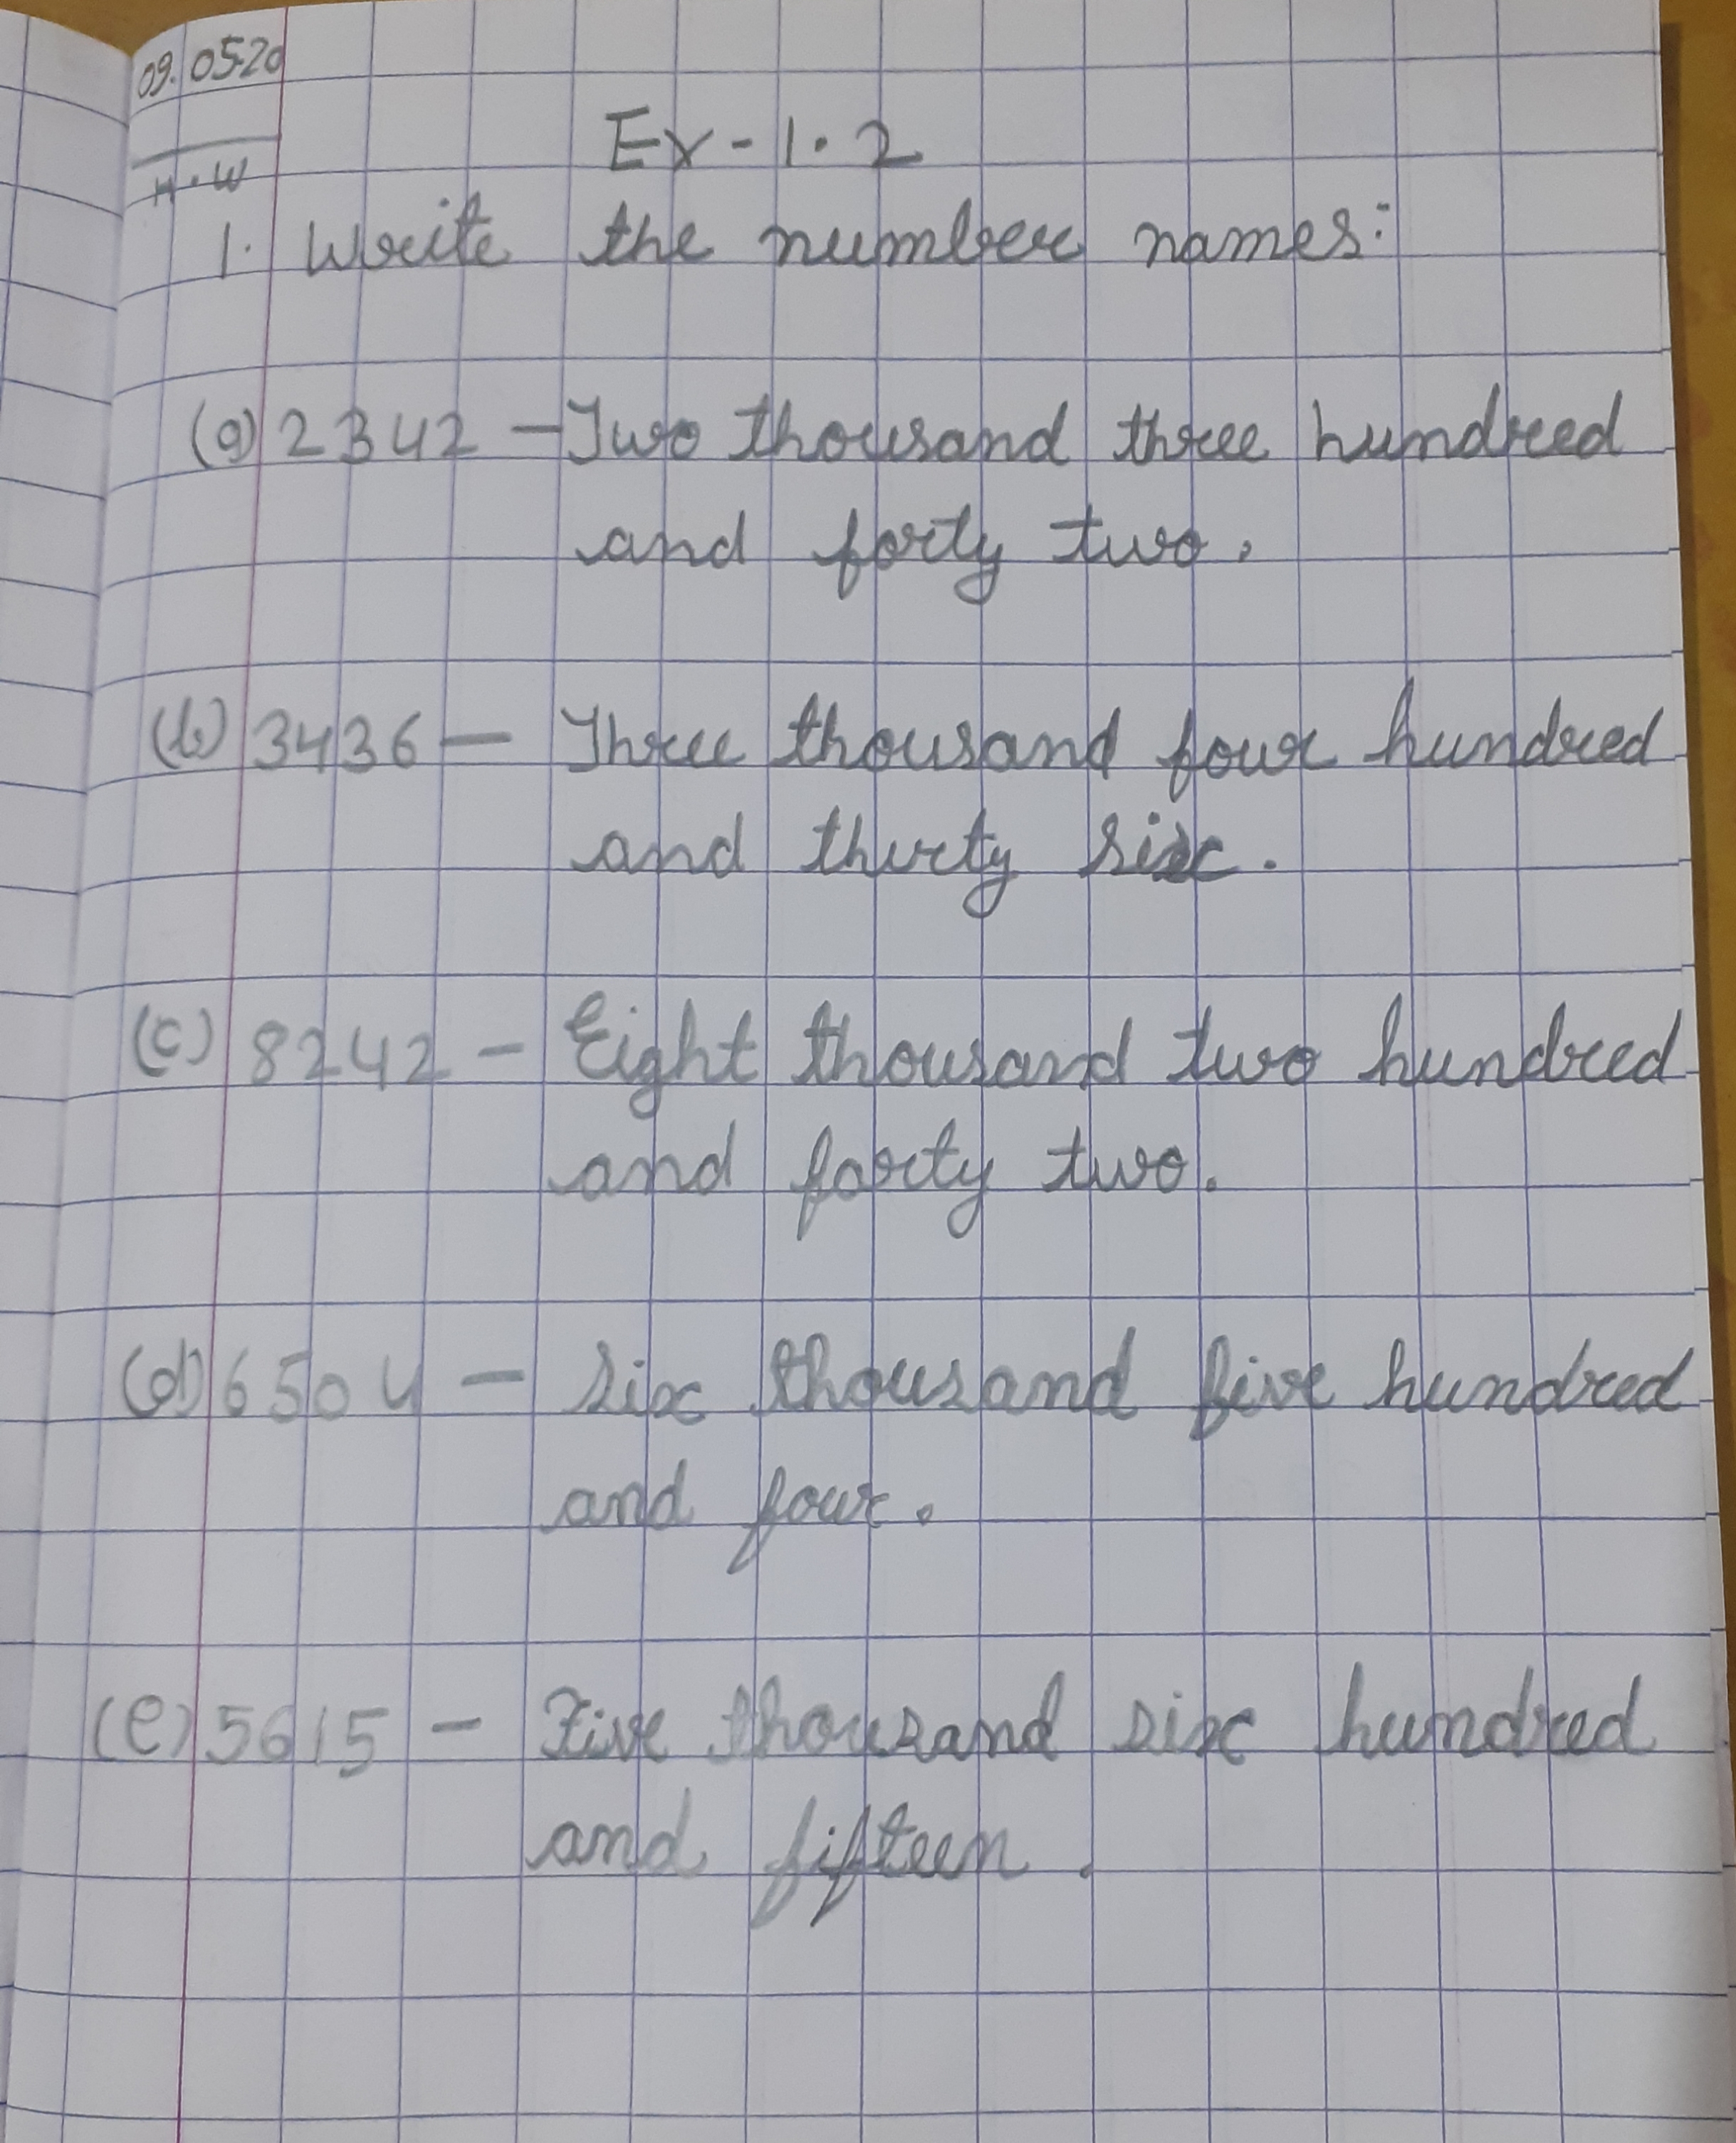 09.0520
H.W
Ex-1.2
1. Write the number names:
(a) 2342 - Two thousand three hundred
and forty two.
(b) 3436 - Three thousand four hundred
and thirty six.
(c) 8242 - Eight thousand two hundred
and forty two.
(d) 6504 - Six thousand five hundred
and four.
(e) 5615 - Five thousand six hundred
and fifteen.